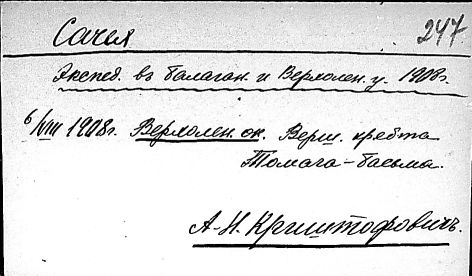 Сачея 247
Экспед. въ балаган. и Верхолен. у. 1908г.
6/VIII 1908г. Верхолен. ок. Верш. хребта
Томага-басьма.
А-Н. Криштофовичъ.